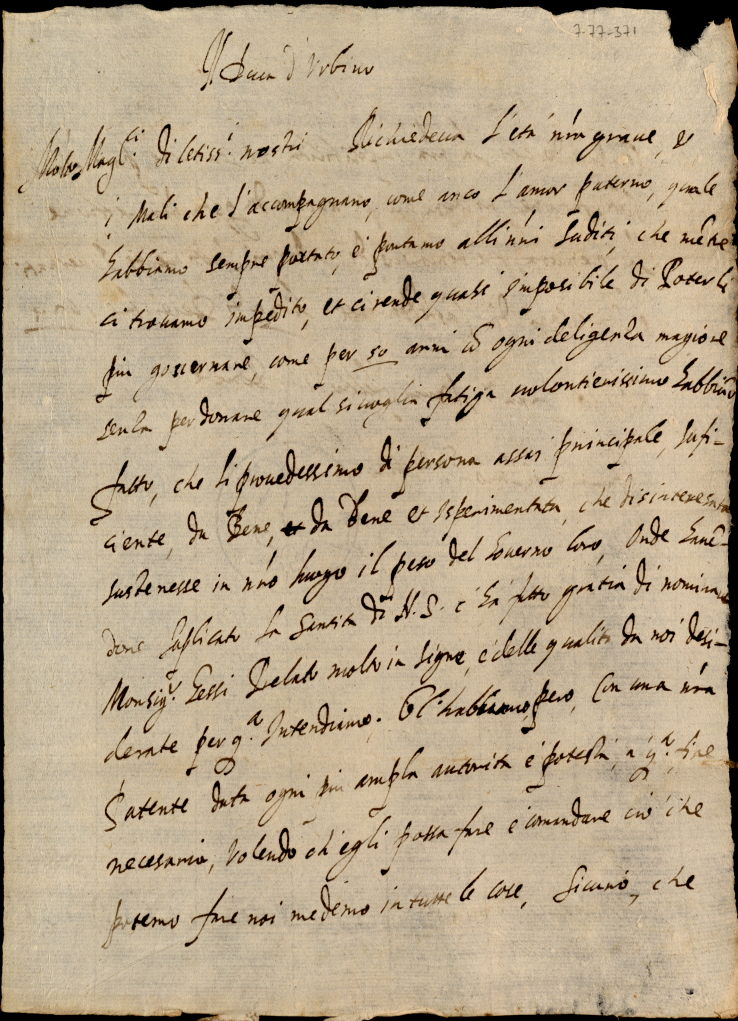 7-77-371
Il Duca d'Urbino
Molto Mag.ci diletiss.i nostri Richiedeva l'età nra grave, et
i Mali che l'accompagnano, come anco l'amor paterno, quale
habbiamo sempre portato, e portamo alli nri suditi, che mentre
ci trovamo impedito, et ci rende quasi imposibile di Poterli
piu governare, come per 50 anni cō ogni deligenza magiore
senza perdonare qual si voglia fatiga volontierissimo habbiāo
fatto, che li provedessimo di persona assai principale, sufi-
ciente, da Bene, et da Bene et isperimentata, che disinteresata
sustenesse in nro luogo il peso del Governo loro, Onde havē-
done suplicato la Santità di N. S. c'hà fatto gratia di nominare
Monsig.r Gessi Prelato molto in signe, e delle qualità da noi desi-
derate per q.a Intendiamo. Gl'habbiamo, pero, con una nra
Patente data ogni piu ampla autorità e potestà, a q.to fine
necesaria, Volendo ch'egli possa fare e comandare ciò che
potemo fare noi medemo in tutte le cose, Sicuri, che